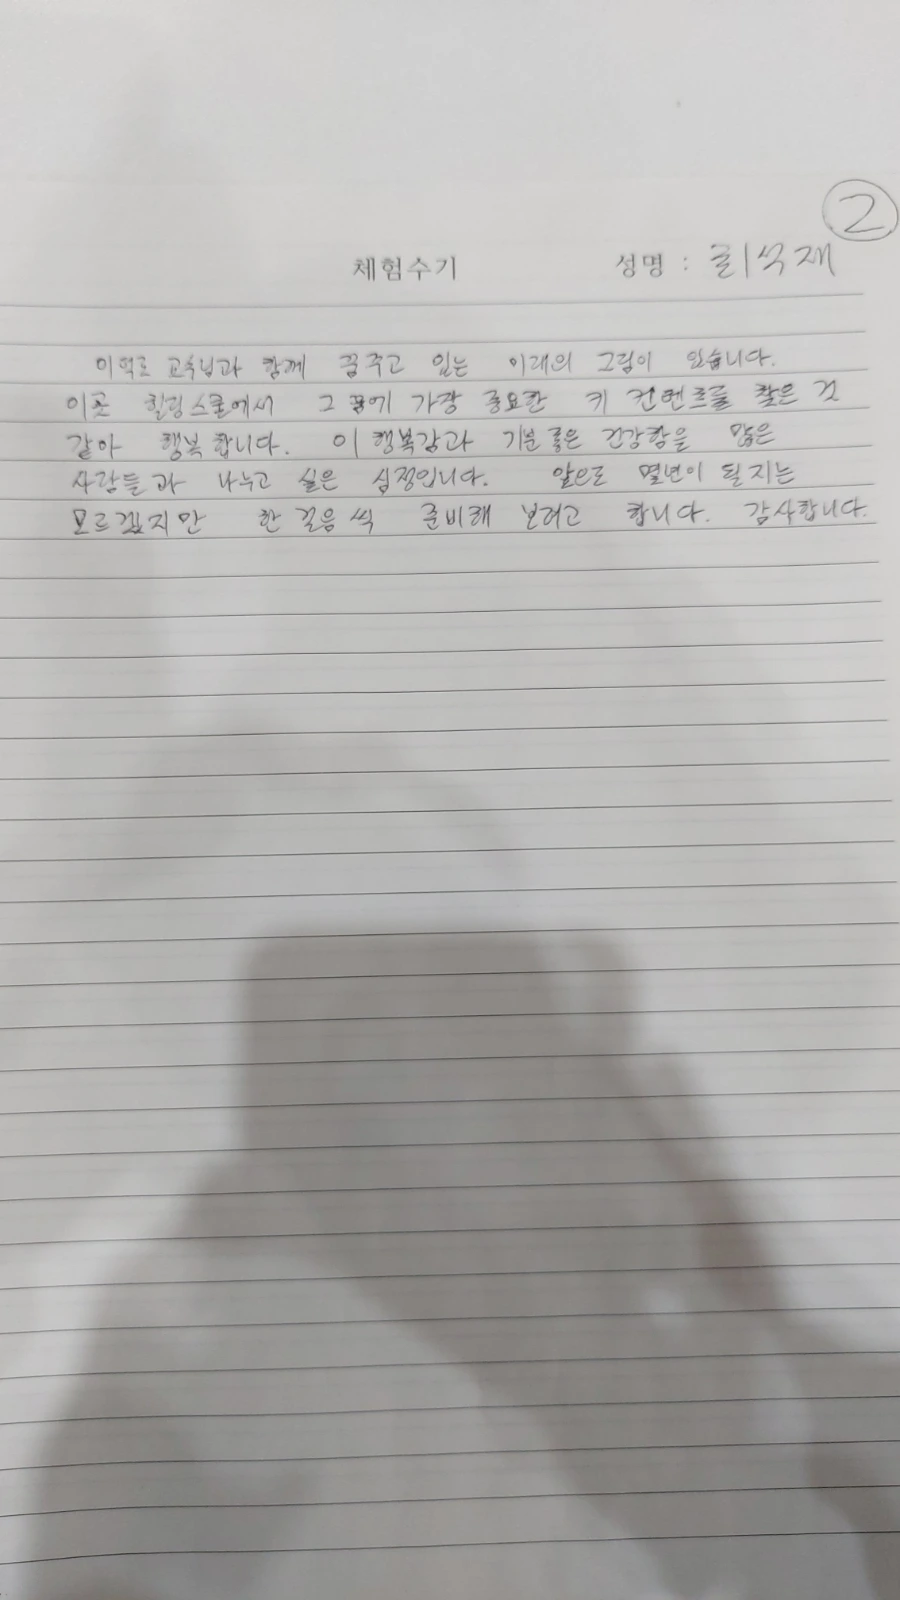 2
체험수기 성명 : 최석재
교수님과 함께 꿈꾸고 있는 미래의 그림이 있습니다.
이곳 힐링스쿨에서 그 꿈에 가장 중요한 키 컨텐츠를 찾은 것
같아 행복합니다. 이 행복감과 기분 좋은 건강함을 많은
사람들과 나누고 싶은 심정입니다. 앞으로 몇년이 될지는
모르겠지만 한 걸음씩 준비해 보려고 합니다. 감사합니다.